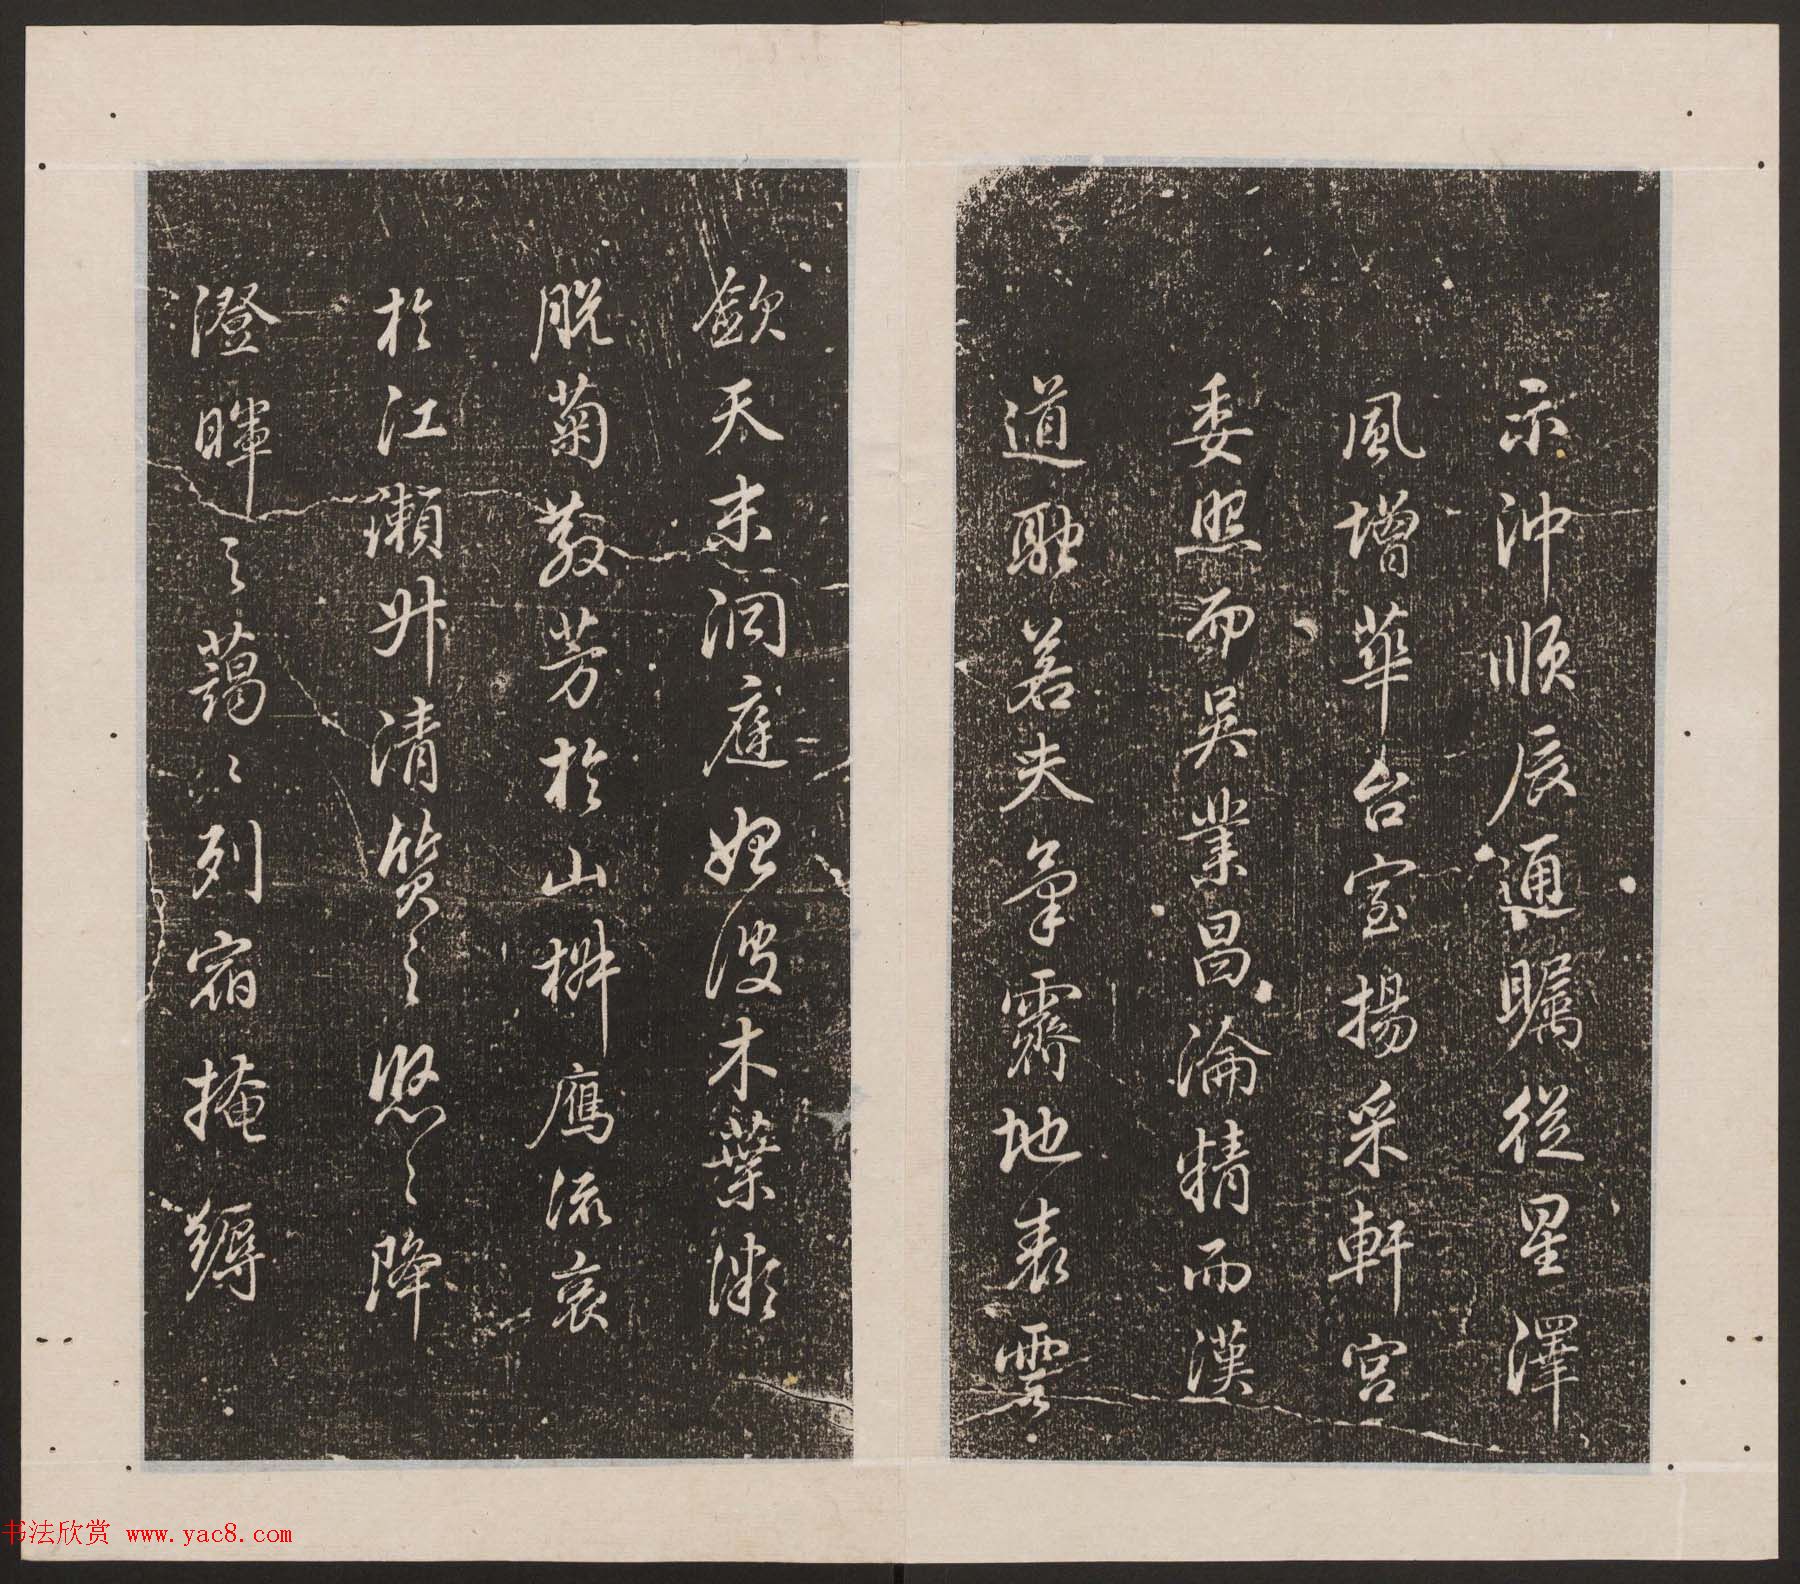 示沖順辰通矚從星澤
風增華台室揚采軒宮
委照而吳業昌淪精而漢
道融若夫氣霽地表雲
歛天末洞庭始波木葉微
脫菊散芳於山椒鴈流哀
於江瀨升清質之悠々降
澄暉之藹々列宿掩縟
书法欣赏 www.yac8.com